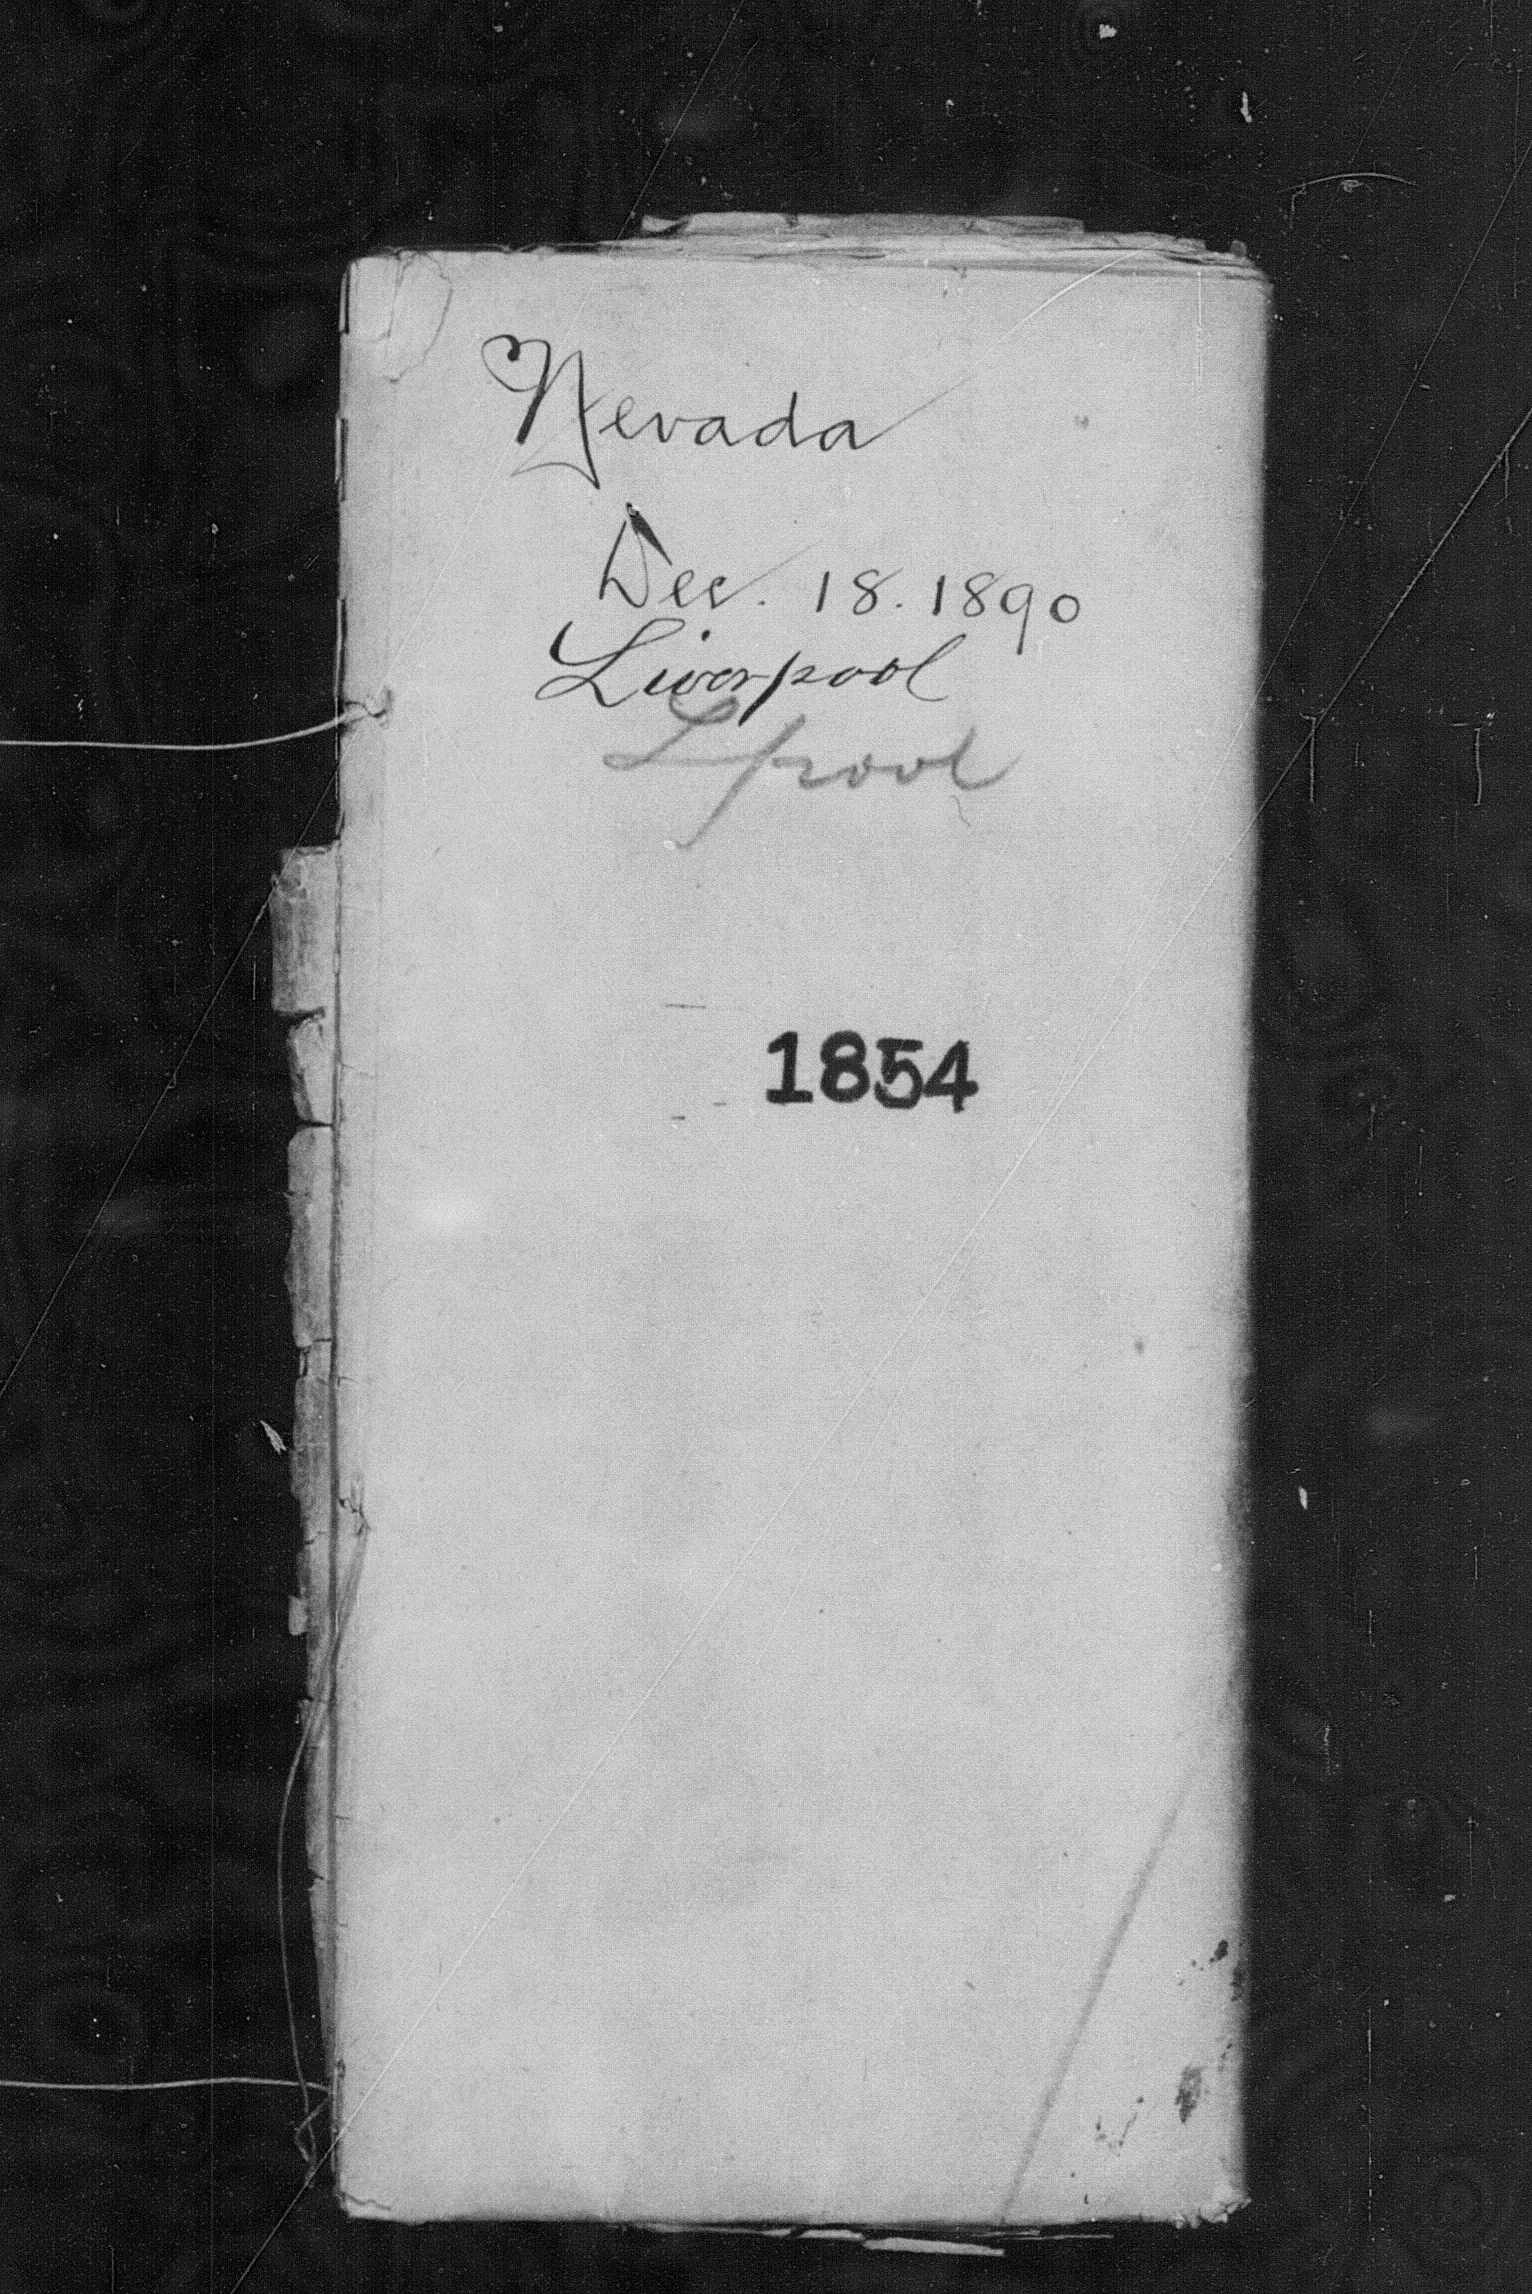 Nevada
Dec. 18. 1890
Liverpool
Lpool
1854